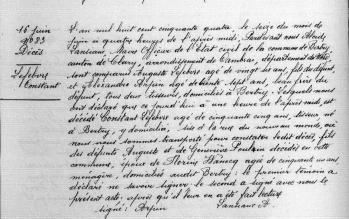 16 Juin
N° 83
Décès
Lefebvre
Constant
L'an mil huit cent cinquante quatre le seize du mois de
Juin à quatre heures de l'après midi, Pardevant nous Aimable
Santiaux, Maire Officier de l'état civil de la commune de Bertry,
canton de Clary, arrondissement de Cambrai, département du Nord
sont comparus Auguste Lefebvre agé de vingt six ans, fils du défunt,
et Alexandre Arpin agé de trente sept ans, beau frère du
défunt, tous deux tisseurs, domiciliés à Bertry; lesquels nous
ont déclaré que ce jourd'hui à une heure de l'après midi, est
décédé Constant Lefebvre agé de cinquante cinq ans, tisseur, né
à Bertry, y domicilié, sis à la rue du nouveau monde, où
nous nous sommes transportés pour constater ledit décès, fils
des défunts Auguste et de Geneviève Poulain décédés en cette
commune, époux de Florine Hennecq agée de cinquante ans,
ménagère, domiciliée audit Bertry; le premier témoin a
déclaré ne savoir signer le second a signé avec nous le
présent acte après qu'il leur en a été fait lecture
signé: Arpin Santiaux A.